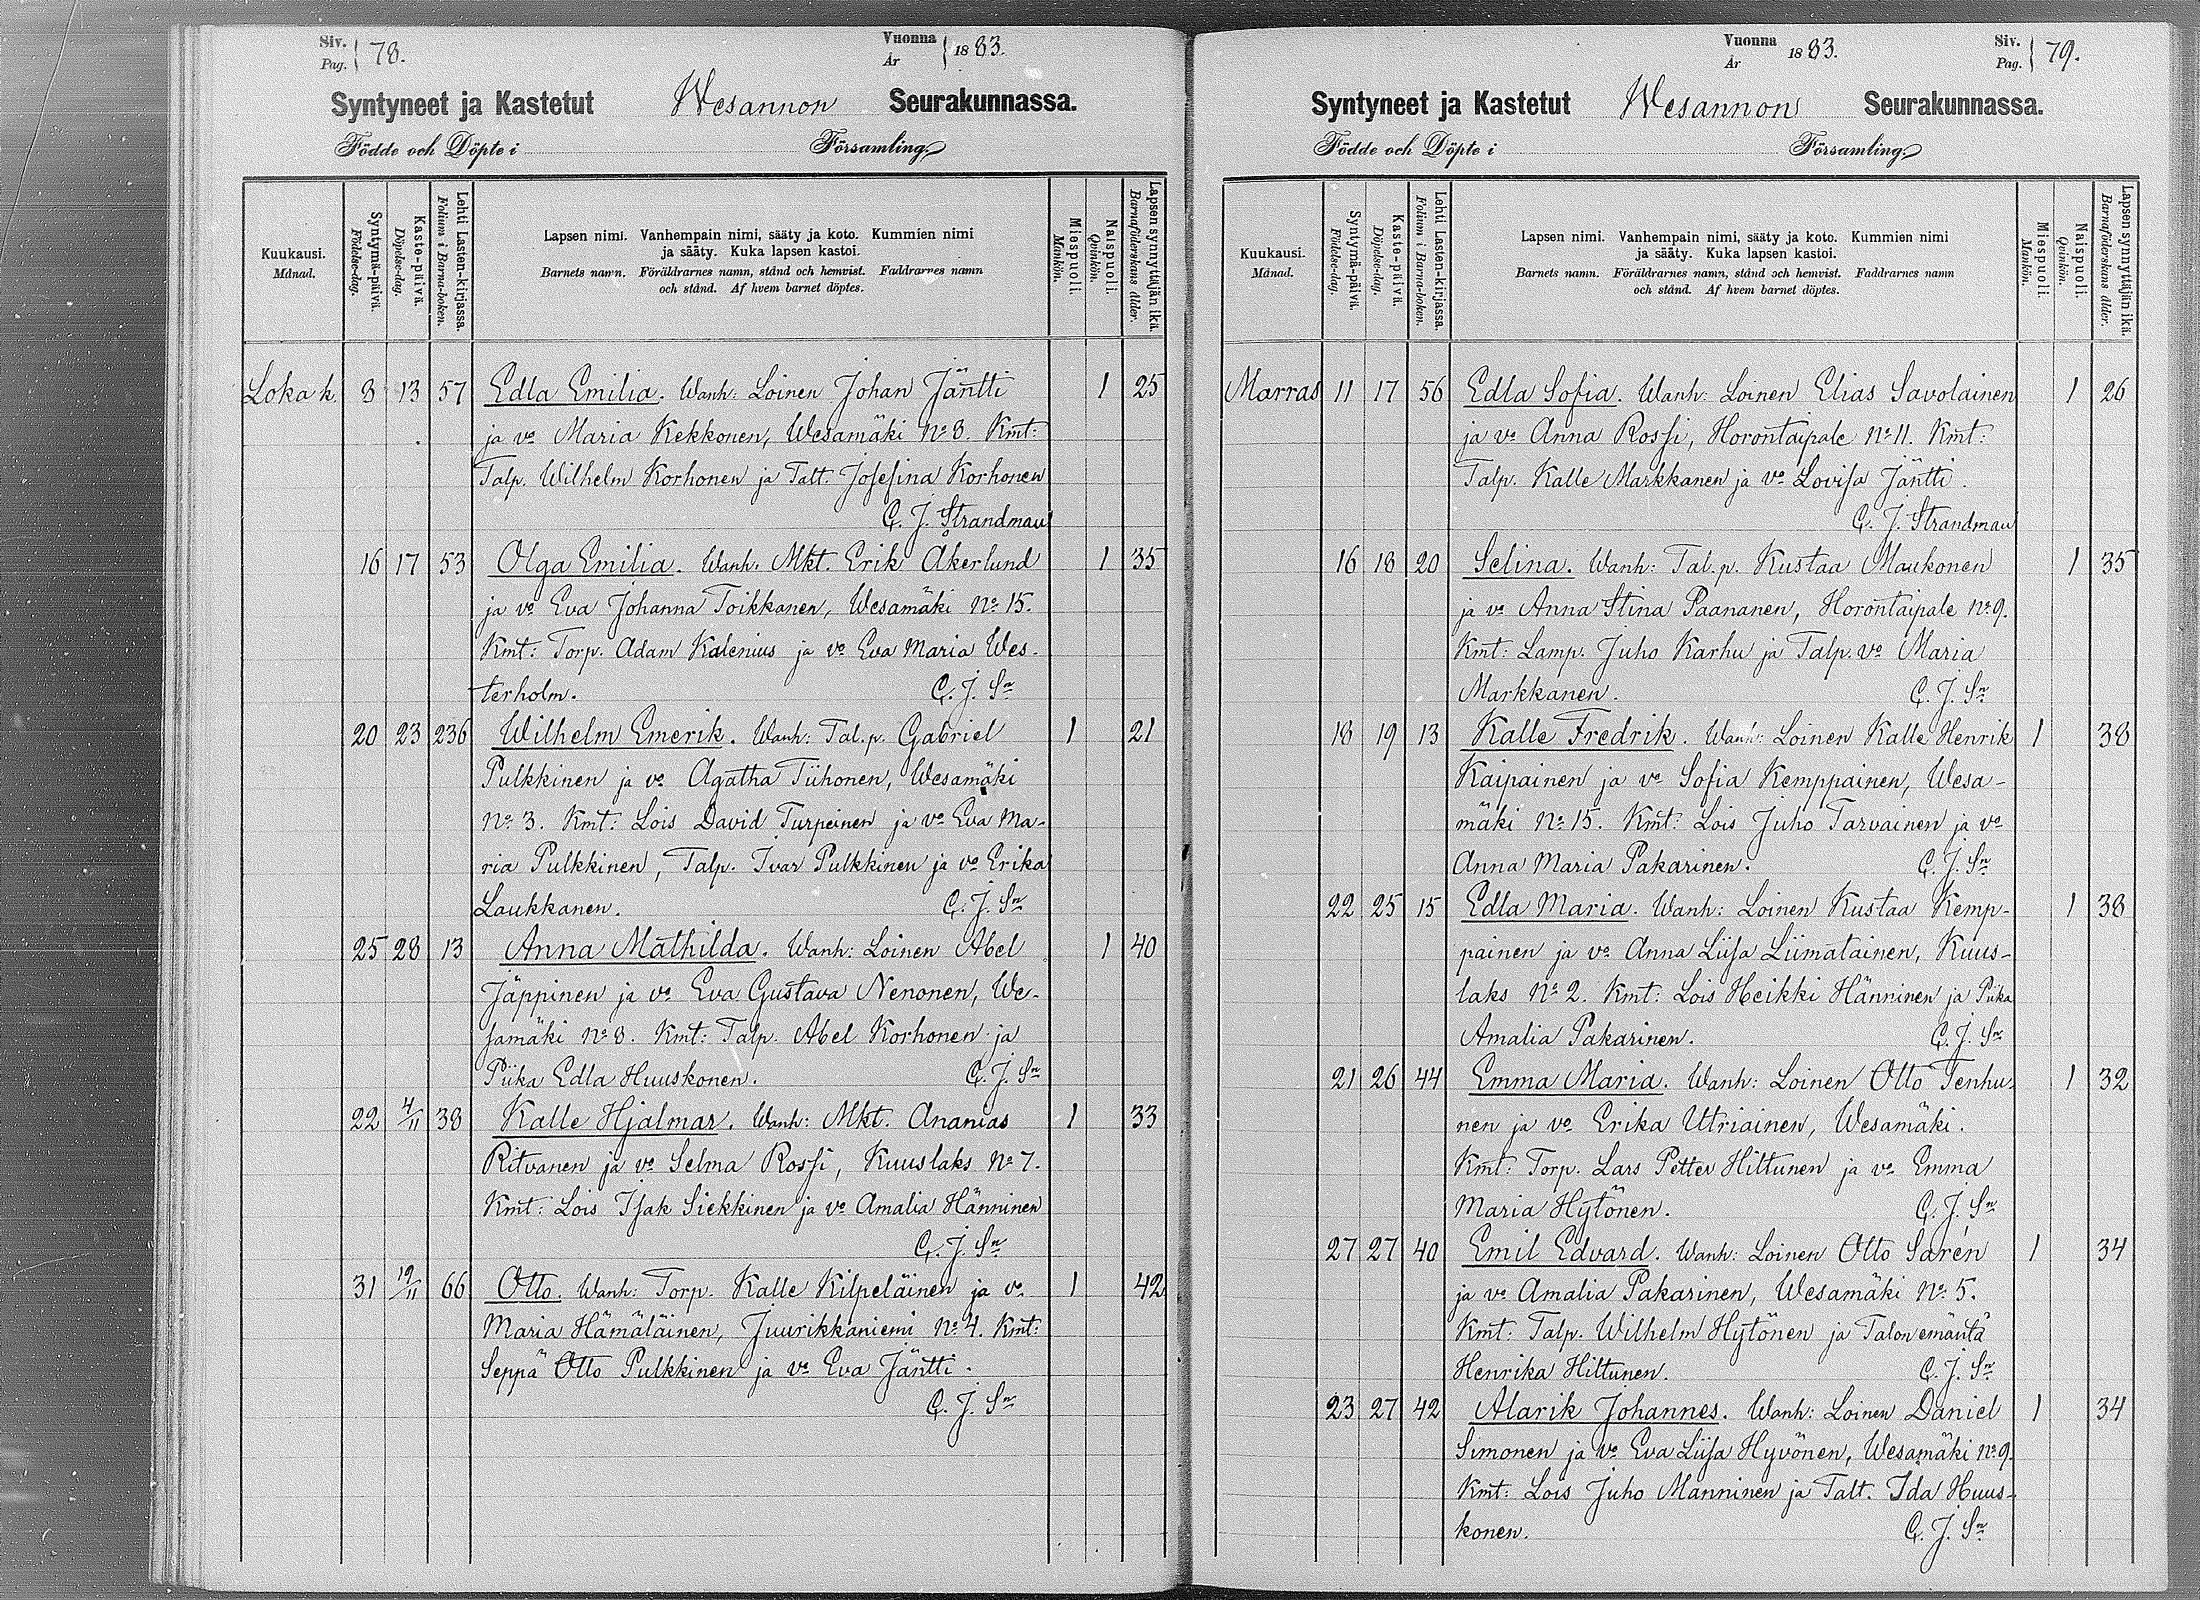 Siv.
Pag. 78.
Vuonna
År 1883.
Syntyneet ja Kastetut Wesannon Seurakunnassa.
Födde och Döpte i Församling.
Kuukausi.
Månad.
Syntymä-päivä.
Födelse-dag.
Kaste-päivä.
Döpelse-dag.
Lehti Lasten-kirjassa.
Folium i Barna-boken.
Lapsen nimi. Vanhempain nimi, sääty ja koto. Kummien nimi
ja sääty. Kuka lapsen kastoi.
Barnets namn. Föräldrarnes namn, stånd och hemvist. Faddrarnes namn
och stånd. Af hvem barnet döptes.
Miespuoli.
Mankön.
Naispuoli.
Qvinkön.
Lapsen synnyttäjän ikä.
Barnaföderskans ålder.
Loka k. 8 13 57 Edla Emilia. Wanh: Loinen Johan Jäntti 1 25
ja vo Maria Kekkonen, Wesamäki No 8. Kmt:
Talp. Wilhelm Korhonen ja Talt. Josefina Korhonen
C. J. Strandman
16 17 53 Olga Emilia. Wanh. Mkt. Erik Åkerlund 1 35
ja vo Eva Johanna Toikkanen, Wesamäki No 15.
Kmt: Torp. Adam Kalenius ja vo Eva Maria Wes-
terholm. C. J. Sn
20 23 236 Wilhelm Emerik. Wanh: Tal.p. Gabriel 1 21
Pulkkinen ja vo Agatha Tiihonen, Wesamäki
No 3. Kmt: Lois David Turpeinen ja vo Eva Ma-
ria Pulkkinen, Talp. Ivar Pulkkinen ja vo Erika
Laukkanen. C. J. Sn
25 28 13 Anna Mathilda. Wanh: Loinen Abel 1 40
Jäppinen ja vo Eva Gustava Nenonen, We-
samäki No 8. Kmt: Talp. Abel Korhonen ja
Piika Edla Huuskonen. C. J. Sn
22 4/11 38 Kalle Hjalmar. Wanh: Mkt. Ananias 1 33
Ritvanen ja vo Selma Rossi, Kuuslaks No 7.
Kmt: Lois Isak Siekkinen ja vo Amalia Hänninen
C. J. Sn
31 19/11 66 Otto. Wanh: Torp. Kalle Kilpeläinen ja vo 1 42
Maria Hämäläinen, Juurikkaniemi No 4. Kmt:
Seppä Otto Pulkkinen ja vo Eva Jäntti.
C. J. Sn
Vuonna
År 1883.
Siv.
Pag. 79.
Syntyneet ja Kastetut Wesannon Seurakunnassa.
Födde och Döpte i Församling.
Kuukausi.
Månad.
Syntymä-päivä.
Födelse-dag.
Kaste-päivä.
Döpelse-dag.
Lehti Lasten-kirjassa.
Folium i Barna-boken.
Lapsen nimi. Vanhempain nimi, sääty ja koto. Kummien nimi
ja sääty. Kuka lapsen kastoi.
Barnets namn. Föräldrarnes namn, stånd och hemvist. Faddrarnes namn
och stånd. Af hvem barnet döptes.
Miespuoli.
Mankön.
Naispuoli.
Qvinkön.
Lapsen synnyttäjän ikä.
Barnaföderskans ålder.
Marras 11 17 56 Edla Sofia. Wanh: Loinen Elias Savolainen 1 26
ja vo Anna Rossi, Horontaipale No 11. Kmt:
Talp. Kalle Markkanen ja vo Lovisa Jäntti.
C. J. Strandman
16 18 20 Selina. Wanh: Tal.p. Kustaa Maukonen 1 35
ja vo Anna Stina Paananen, Horontaipale No 9.
Kmt: Lamp. Juho Karhu ja Talp. vo Maria
Markkanen. C. J. Sn
18 19 13 Kalle Fredrik. Wanh: Loinen Kalle Henrik 1 38
Kaipainen ja vo Sofia Kemppainen, Wesa-
mäki No 15. Kmt: Lois Juho Tarvainen ja vo
Anna Maria Pakarinen. C. J. Sn
22 25 15 Edla Maria. Wanh: Loinen Kustaa Kemp- 1 38
painen ja vo Anna Liisa Liimatainen, Kuus-
laks No 2. Kmt: Lois Heikki Hänninen ja Piika
Amalia Pakarinen. C. J. Sn
21 26 44 Emma Maria. Wanh: Loinen Otto Tenhu- 1 32
nen ja vo Erika Utriainen, Wesamäki.
Kmt: Torp. Lars Petter Hiltunen ja vo Emma
Maria Hytönen. C. J. Sn
27 27 40 Emil Edvard. Wanh: Loinen Otto Sarén 1 34
ja vo Amalia Pakarinen, Wesamäki No 5.
Kmt: Talp. Wilhelm Hytönen ja Talon emäntä
Henrika Hiltunen. C. J. Sn
23 27 42 Alarik Johannes. Wanh: Loinen Daniel 1 34
Simonen ja vo Eva Liisa Hyvönen, Wesamäki No 9.
Kmt: Lois Juho Manninen ja Talt. Ida Huus-
konen. C. J. Sn